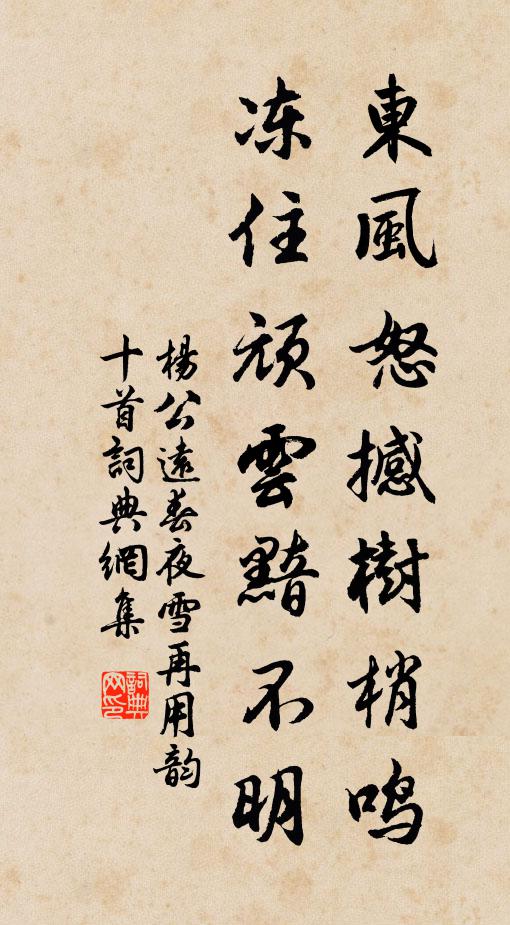 東風怒撼樹梢鳴
冻住頑雲黯不明
楊公遠春夜雪再用韵
十首詞典網集
詞典网印